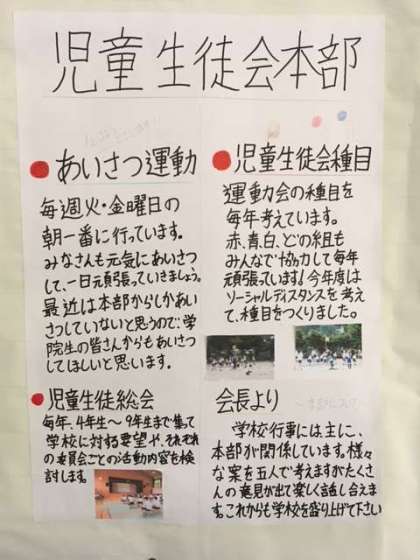 児童生徒会本部
●あいさつ運動
毎週火・金曜日の
朝一番に行っています。
みなさんも元気にあいさつ
して、一日元頑張っていきましょう。
最近は本部からしかあい
さつしていないと思うので、学
院生の皆さんからもあいさつ
してほしいと思います。
●児童生徒会種目
運動会の種目を
毎年考えています。
赤、青、白、どの組も
みんなで協力して毎年
頑張っています!今年度は
ソーシャルディスタンスを考え
て、種目をつくりました。
●児童生徒総会
毎年、4年生～9年生まで集って
学校に対する要望や、それぞれ
の委員会ごとの活動内容を検
討します。
会長より
学校行事には主に、
本部が関係しています。様々
な案を五人で考えますがたくさ
んの意見が出て楽しく話し合えま
す。これからも学校を盛り上げて下さい